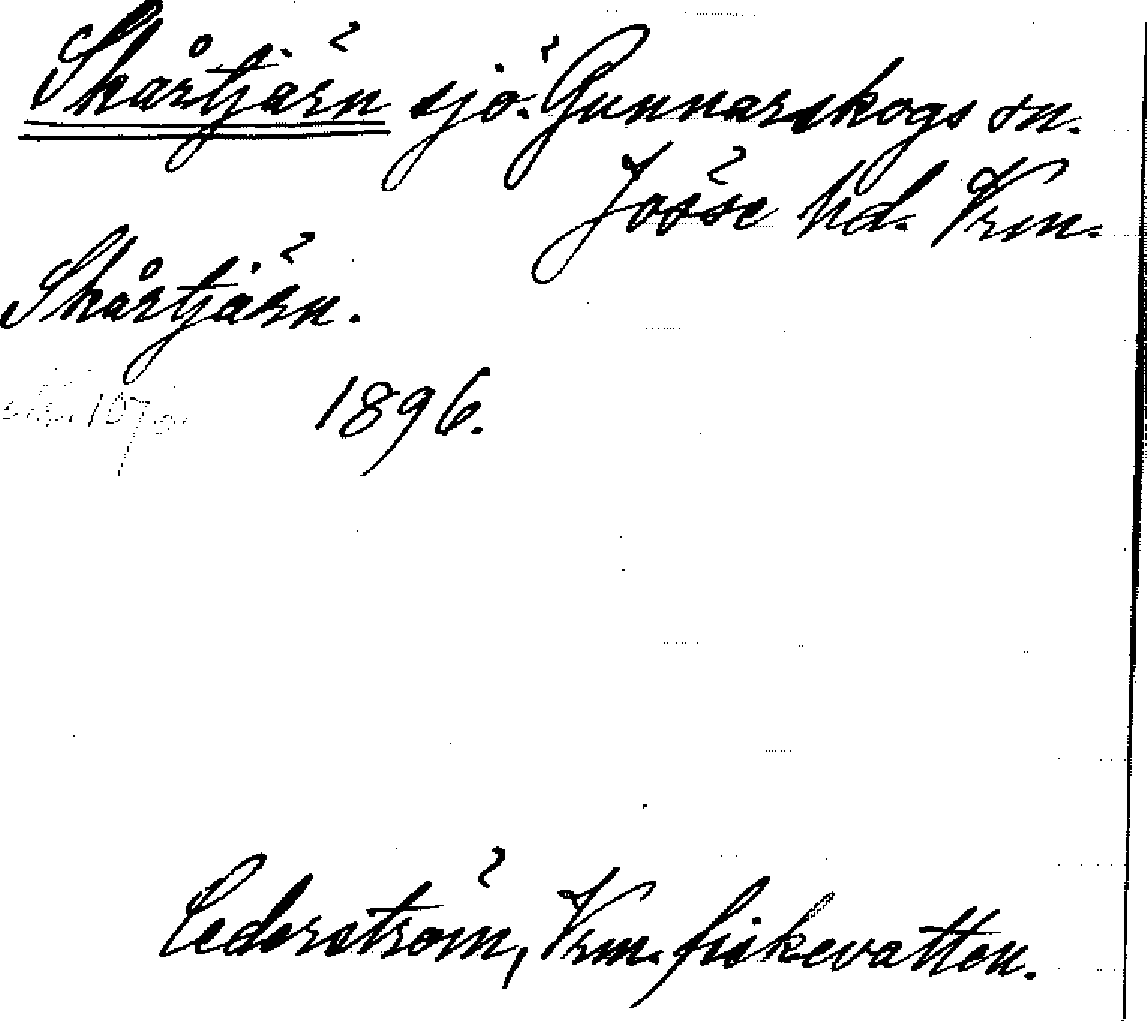 Skårtjärn sjö. Gunnarskogs sn.
Jösse hd. Vrm.
Skårtjärn.
1896.
Cederström, Vrm. fiskevatten.